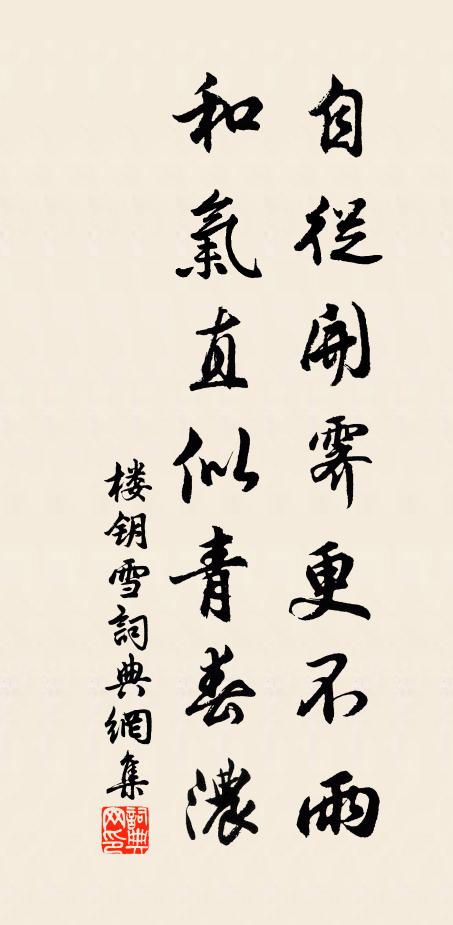 自從開霽更不雨
和氣直似青春濃
楼钥雪詞典網集
詞典网印